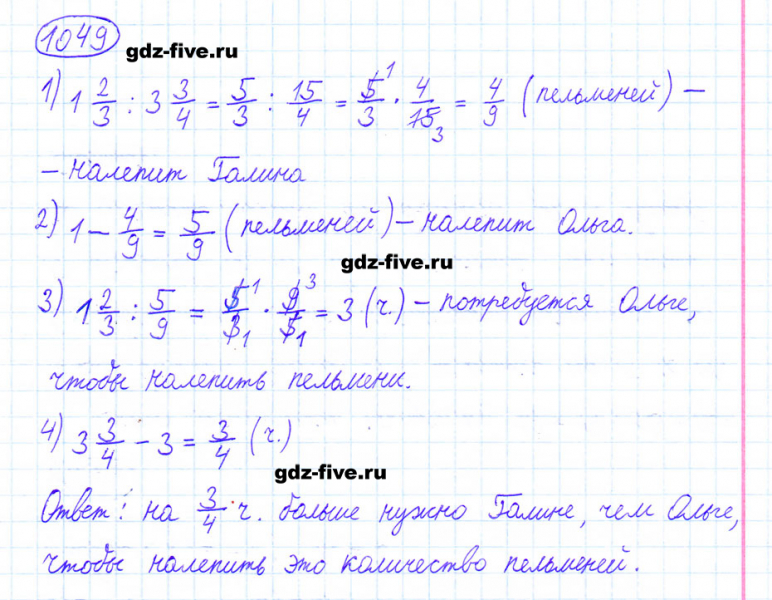 1049
gdz-five.ru
1) 1 2/3 : 3 3/4 = 5/3 : 15/4 = 5 1/3 · 4/15 3 = 4/9 (пельменей) –
– налепит Галина
2) 1 – 4/9 = 5/9 (пельменей) – налепит Ольга.
gdz-five.ru
3) 1 2/3 : 5/9 = 5 1/3 1 · 9 3/5 1 = 3 (ч.) – потребуется Ольге,
чтобы налепить пельмени.
4) 3 3/4 – 3 = 3/4 (ч.)
gdz-five.ru
Ответ: на 3/4 ч. больше нужно Галине, чем Ольге,
чтобы налепить это количество пельменей.